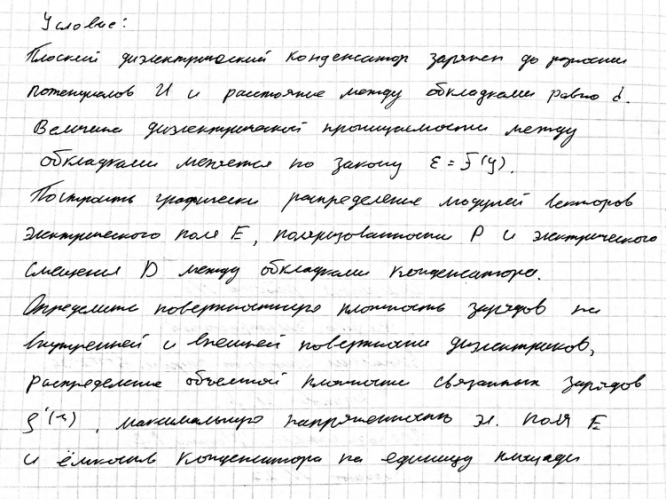 Условие:
Плоский диэлектрический конденсатор заряжен до разности
потенциалов U и расстояние между обкладками равно d.
Величина диэлектрической проницаемости между
обкладками меняется по закону ε = f(y).
Построить графически распределение модулей векторов
электрического поля E, поляризованности P и электрического
смещения D между обкладками конденсатора.
Определить поверхностную плотность зарядов на
внутренней и внешней поверхности диэлектриков,
распределение объемной плотности связанных зарядов
ρ'(x), максимальную напряженность эл. поля E
и ёмкость конденсатора на единицу площади